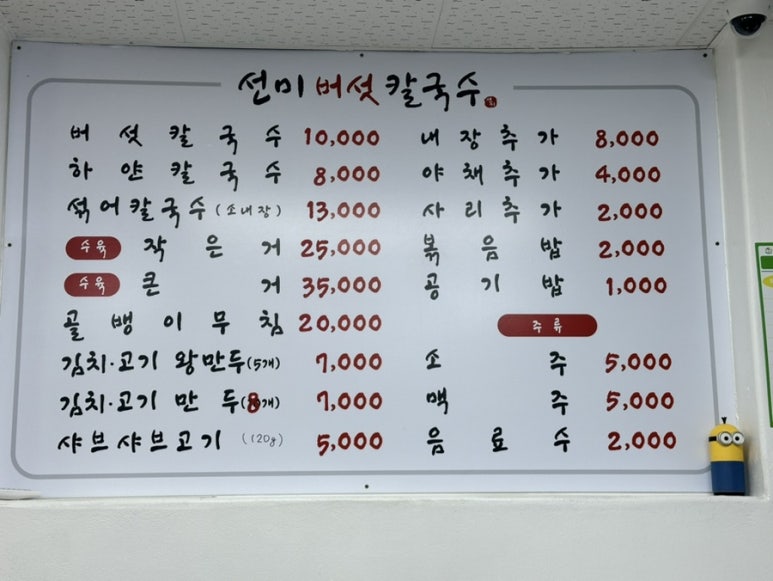 선미버섯칼국수
버섯칼국수 10,000
하얀칼국수 8,000
섞어칼국수(소내장) 13,000
수육 작은거 25,000
수육 큰거 35,000
골뱅이무침 20,000
김치·고기 왕만두(5개) 7,000
김치·고기 만두(8개) 7,000
샤브샤브고기 (120g) 5,000
내장추가 8,000
야채추가 4,000
사리추가 2,000
볶음밥 2,000
공기밥 1,000
주류
소주 5,000
맥주 5,000
음료수 2,000